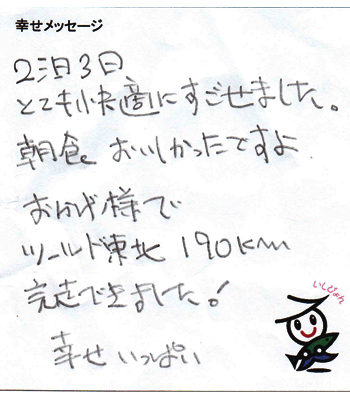 幸せメッセージ
2泊3日
とても快適にすごせました。
朝食、おいしかったですよ
おかげ様で
ツールド東北 190km
完走できました！
いしぴょん
幸せいっぱい